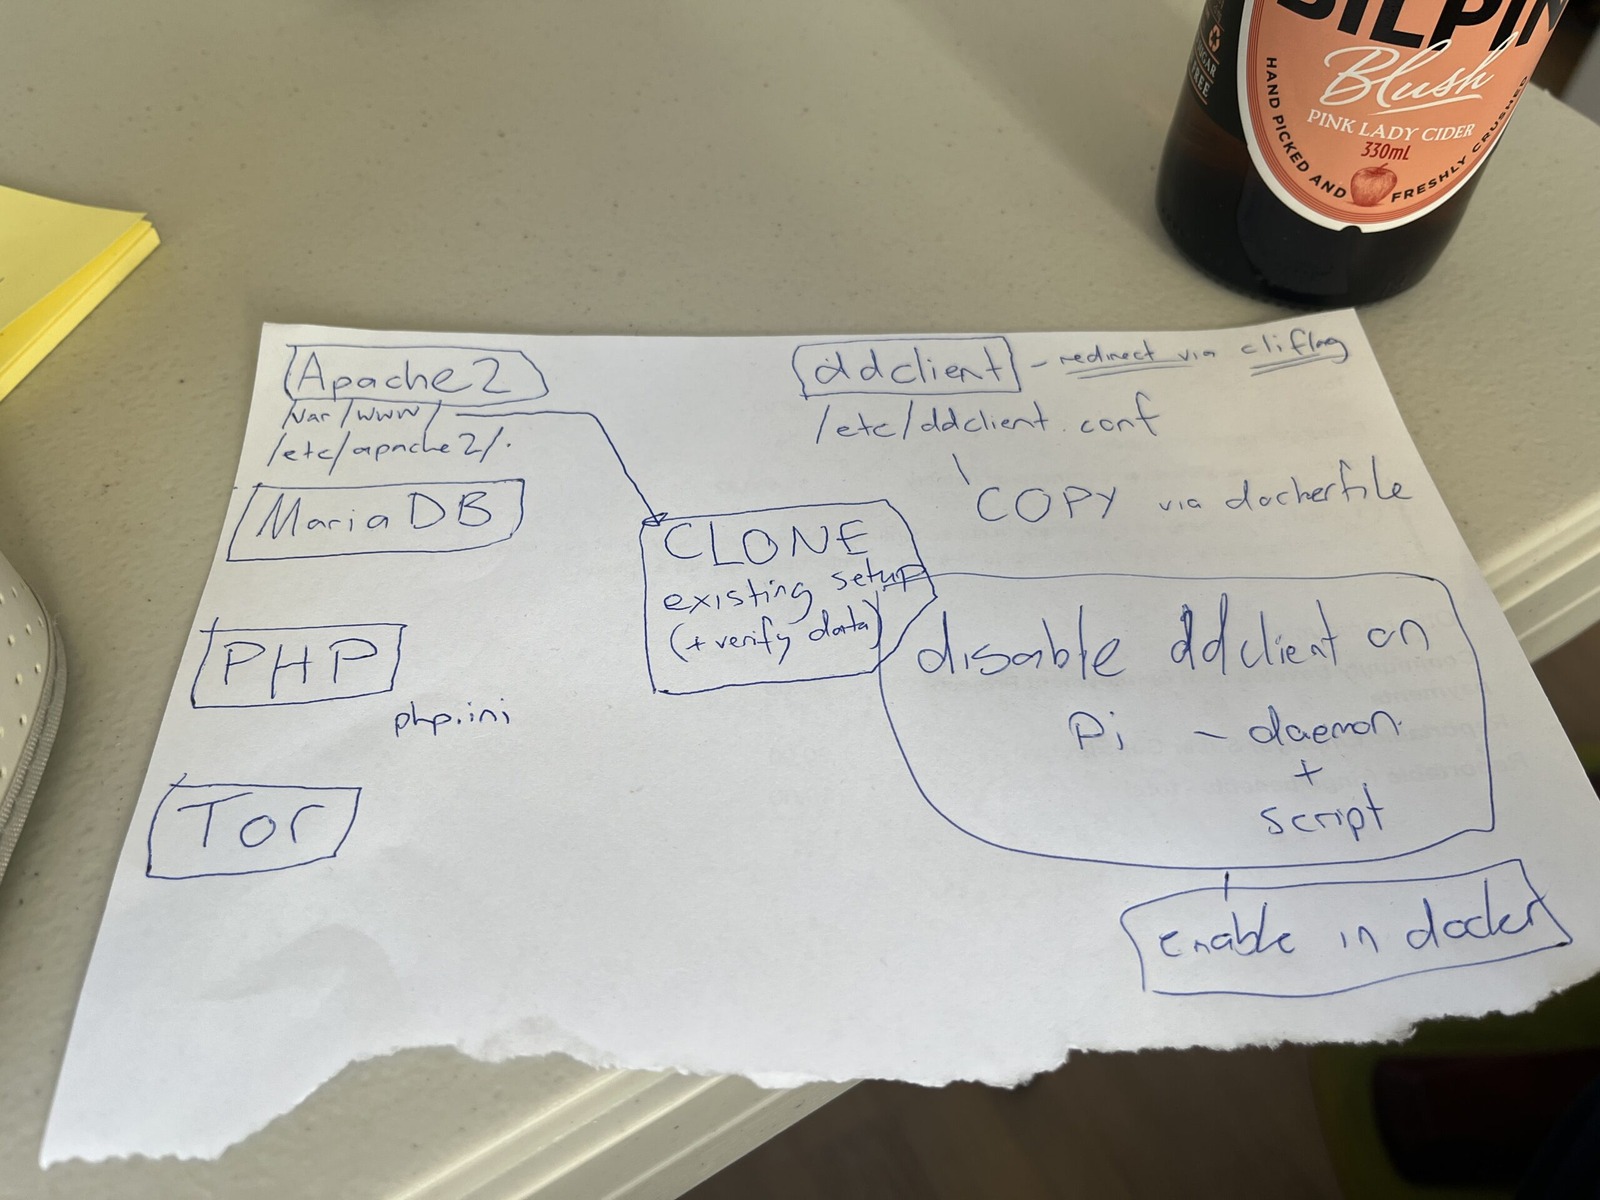 BILPIN
Blush
PINK LADY CIDER
330mL
HAND PICKED AND FRESHLY CRUSHED
SUGAR
FREE
Apache2
/var/www/
/etc/apache2/.
MariaDB
PHP
php.ini
Tor
CLONE
existing setup
(+ verify data)
ddclient - redirect via cliflag
/etc/ddclient.conf
COPY via dockerfile
disable ddclient on
Pi - daemon
+
script
enable in docker